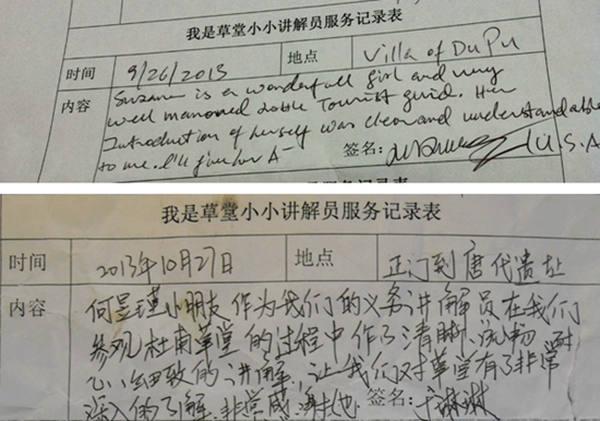 我是草堂小小讲解员服务记录表
时间 9/26/2013 地点 Villa of Du Fu
内容 Suzane is a wonderfull girl and very
well mannored noble Tourist guid. Her
Introduction of herself was clear and understandable
to me. I'll give her A- 签名: U.S.A
我是草堂小小讲解员服务记录表
时间 2013年10月27日 地点 正门到唐代遗址
内容 何昱瑾小朋友作为我们的义务讲解员在我们
参观杜甫草堂的过程中作了清晰、流畅、耐
心、细致的讲解，让我们对草堂有了非常
深入的了解，非常感谢他 签名: 琳琳